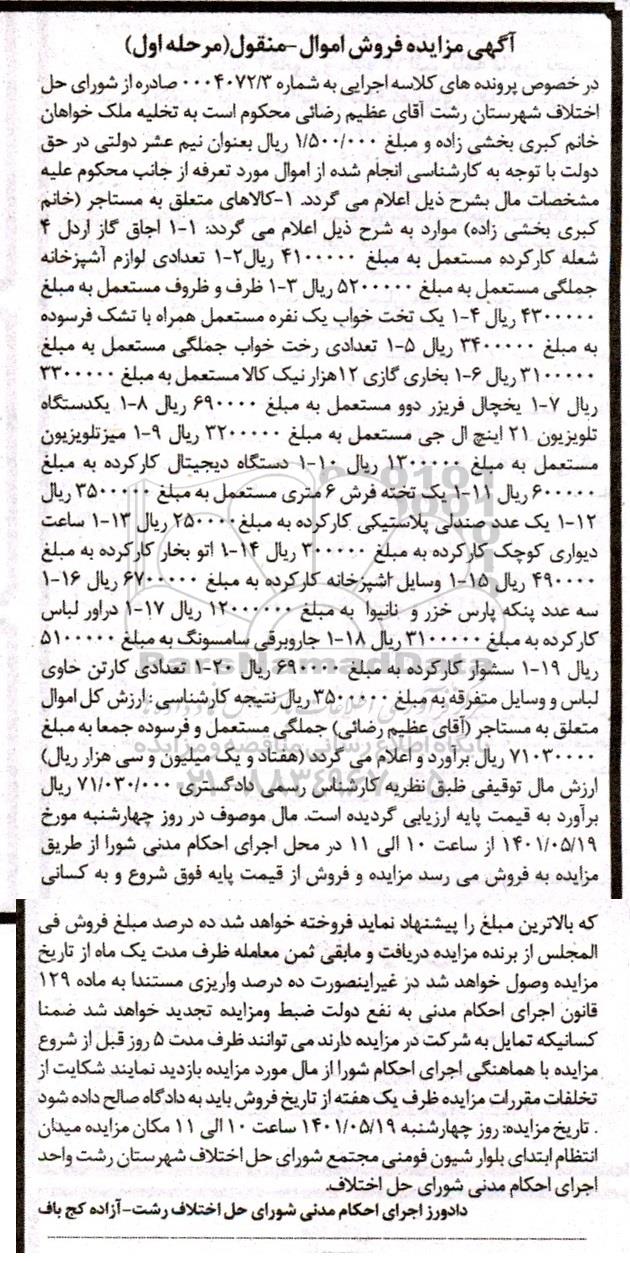 آگهی مزایده فروش اموال-منقول(مرحله اول)
در خصوص پرونده های کلاسه اجرایی به شماره ۰۰۰۴۰۷۲/۳ صادره از شورای حل
اختلاف شهرستان رشت آقای عظیم رضائی محکوم است به تخلیه ملک خواهان
خانم کبری بخشی زاده و مبلغ ۱/۵۰۰/۰۰۰ ریال بعنوان نیم عشر دولتی در حق
دولت با توجه به کارشناسی انجام شده از اموال مورد تعرفه از جانب محکوم علیه
مشخصات مال بشرح ذیل اعلام می گردد. ۱-کالاهای متعلق به مستاجر (خانم
کبری بخشی زاده) موارد به شرح ذیل اعلام می گردد: ۱-۱ اجاق گاز اردل ۴
شعله کارکرده مستعمل به مبلغ ۴۱۰۰۰۰۰ ریال۲-۱ تعدادی لوازم آشپزخانه
جملگی مستعمل به مبلغ ۵۲۰۰۰۰۰ ریال ۳-۱ ظرف و ظروف مستعمل به مبلغ
۴۳۰۰۰۰۰ ریال ۴-۱ یک تخت خواب یک نفره مستعمل همراه با تشک فرسوده
به مبلغ ۳۴۰۰۰۰۰ ریال ۵-۱ تعدادی رخت خواب جملگی مستعمل به مبلغ
۳۱۰۰۰۰۰ ریال ۶-۱ بخاری گازی ۱۲هزار نیک کالا مستعمل به مبلغ ۳۳۰۰۰۰۰
ریال ۷-۱ یخچال فریزر دوو مستعمل به مبلغ ۶۹۰۰۰۰ ریال ۸-۱ یکدستگاه
تلویزیون ۲۱ اینچ ال جی مستعمل به مبلغ ۳۲۰۰۰۰۰ ریال ۹-۱ میزتلویزیون
مستعمل به مبلغ ۱۳۰۰۰۰۰ ریال ۱۰-۱ دستگاه دیجیتال کارکرده به مبلغ
۶۰۰۰۰۰ ریال ۱۱-۱ یک تخته فرش ۶ متری مستعمل به مبلغ ۳۵۰۰۰۰۰ ریال
۱۲-۱ یک عدد صندلی پلاستیکی کارکرده به مبلغ۲۵۰۰۰۰ ریال ۱۳-۱ ساعت
دیواری کوچک کارکرده به مبلغ ۳۰۰۰۰۰ ریال ۱۴-۱ اتو بخار کارکرده به مبلغ
۴۹۰۰۰۰ ریال ۱۵-۱ وسایل اشپزخانه کارکرده به مبلغ ۶۷۰۰۰۰۰ ریال ۱۶-۱
سه عدد پنکه پارس خزر و نانیوا به مبلغ ۱۲۰۰۰۰۰۰ ریال ۱۷-۱ دراور لباس
کارکرده به مبلغ ۳۱۰۰۰۰۰ ریال ۱۸-۱ جاروبرقی سامسونگ به مبلغ ۵۱۰۰۰۰۰
ریال ۱۹-۱ سشوار کارکرده به مبلغ ۶۹۰۰۰۰ ریال ۲۰-۱ تعدادی کارتن حاوی
لباس و وسایل متفرقه به مبلغ ۳۵۰۰۰۰۰ ریال نتیجه کارشناسی: ارزش کل اموال
متعلق به مستاجر (آقای عظیم رضائی) جملگی مستعمل و فرسوده جمعا به مبلغ
۷۱۰۳۰۰۰۰ ریال برآورد و اعلام می گردد (هفتاد و یک میلیون و سی هزار ریال)
ارزش مال توقیفی طبق نظریه کارشناس رسمی دادگستری ۷۱/۰۳۰/۰۰۰ ریال
برآورد به قیمت پایه ارزیابی گردیده است. مال موصوف در روز چهارشنبه مورخ
۱۴۰۱/۰۵/۱۹ از ساعت ۱۰ الی ۱۱ در محل اجرای احکام مدنی شورا از طریق
مزایده به فروش می رسد مزایده و فروش از قیمت پایه فوق شروع و به کسانی
که بالاترین مبلغ را پیشنهاد نماید فروخته خواهد شد ده درصد مبلغ فروش فی
المجلس از برنده مزایده دریافت و مابقی ثمن معامله ظرف مدت یک ماه از تاریخ
مزایده وصول خواهد شد در غیراینصورت ده درصد واریزی مستندا به ماده ۱۲۹
قانون اجرای احکام مدنی به نفع دولت ضبط ومزایده تجدید خواهد شد ضمنا
کسانیکه تمایل به شرکت در مزایده دارند می توانند ظرف مدت ۵ روز قبل از شروع
مزایده با هماهنگی اجرای احکام شورا از مال مورد مزایده بازدید نمایند شکایت از
تخلفات مقررات مزایده ظرف یک هفته از تاریخ فروش باید به دادگاه صالح داده شود
. تاریخ مزایده: روز چهارشنبه ۱۴۰۱/۰۵/۱۹ ساعت ۱۰ الی ۱۱ مکان مزایده میدان
انتظام ابتدای بلوار شیون فومنی مجتمع شورای حل اختلاف شهرستان رشت واحد
اجرای احکام مدنی شورای حل اختلاف
دادورز اجرای احکام مدنی شورای حل اختلاف رشت-آزاده کج باف